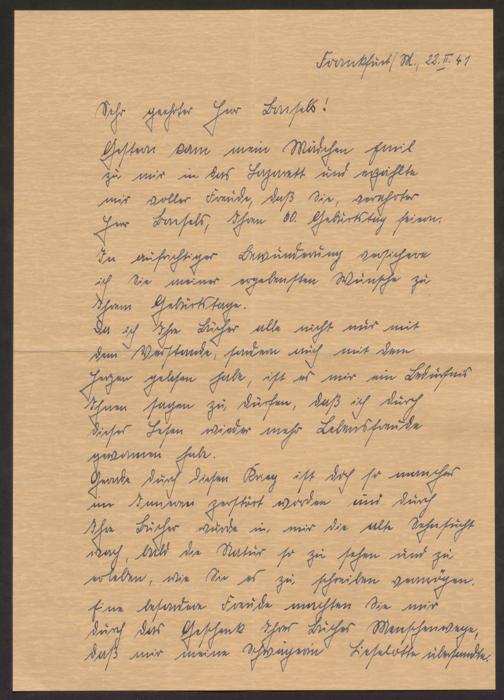 Frankfurt/M., 22.II.41
Sehr geehrter Herr Bonsels!
Gestern kam mein Mädchen Emil
zu mir in das Lazarett und erzählte
mir voller Freude, daß Sie, verehrter
Herr Bonsels, Ihren 60. Geburtstag feiern.
In aufrichtiger Bewunderung versichere
ich Sie meiner ergebensten Wünsche zu
Ihrem Geburtstage.
Da ich Ihre Bücher alle nicht nur mit
dem Verstande, sondern auch mit dem
Herzen gelesen habe, ist es mir ein Bedürfnis
Ihnen sagen zu dürfen, daß ich durch
dieses Lesen wieder mehr Lebensfreude
gewonnen habe.
Gerade durch diesen Krieg ist doch so manches
im Inneren zerstört worden und durch
Ihre Bücher wurde in mir die alte Sehnsucht
wach, bald die Natur so zu sehen und zu
erleben, wie Sie es zu schreiben vermögen.
Eine besondere Freude machten Sie mir
durch das Geschenk Ihres Buches Menschenwege,
daß mir meine Schwägerin Lieselotte übersandte.